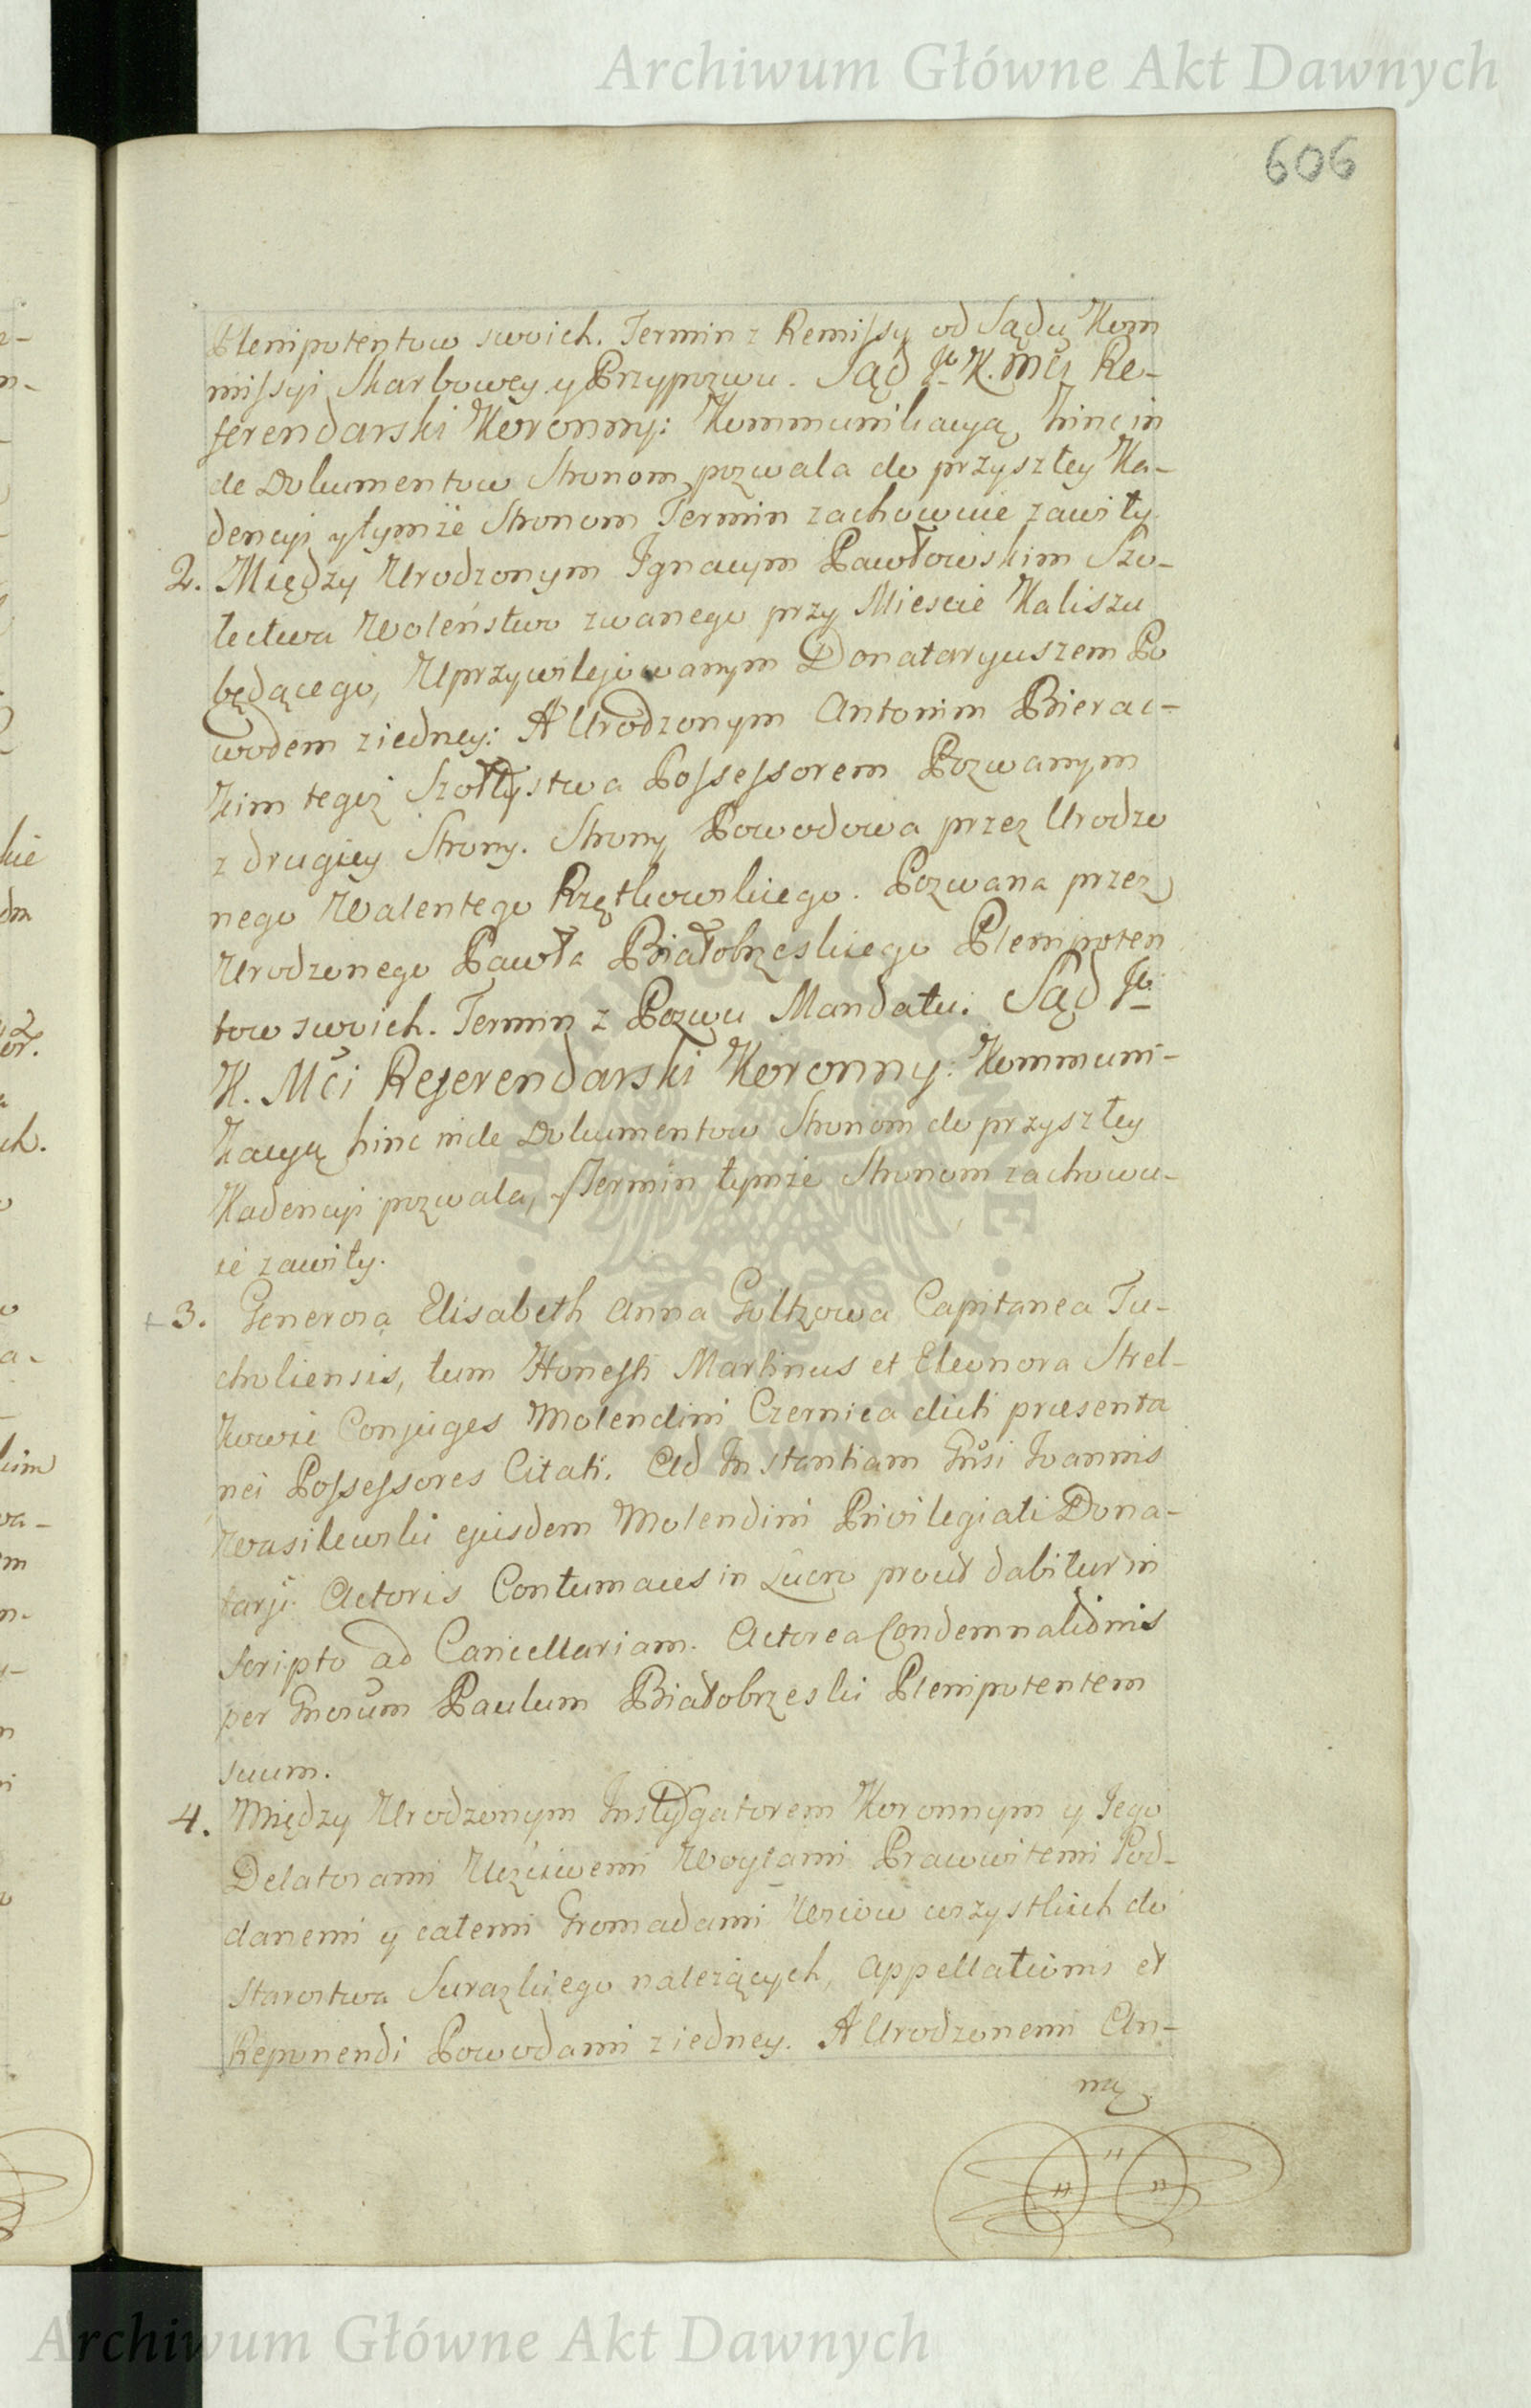 Archiwum Główne Akt Dawnych
606
Plenipotentow swoich. Termin z Remissy od Sądu Kom
missyi Skarbowey y Przypozwu. Sąd J. K. Mci Re-
ferendarski Koronny: Kommunikacyą hinc in
de Dokumentow Stronom pozwala do przyszłey Ka-
dencyi y tymże Stronom Termin zachowuie zawiły.
2. Między Urodzonym Ignacym Pawłowskim Szo-
lectwa Woleństwo zwanego przy Miescie Kaliszu
będącego, Uprzywilejowanym Donataryuszem Po
wodem z iedney: A Urodzonym Antonim Bierac-
kim tegoż Szołtystwa Possessorem Pozwanym
z drugiey Strony. Strony Powodowa przez Urodzo
nego Walentego Rzętkowskiego. Pozwana przez
Urodzonego Pawła Białobrzeskiego Plenipoten
tow swoich. Termin z Pozwu Mandatu. Sąd J.
K. Mći Referendarski Koronny: Kommuni-
kacyą hinc inde Dokumentow Stronom do przyszłey
Kadencyi pozwala, y Termin tymże Stronom zachowu-
ie zawiły.
3. Generosa Elisabeth Anna Goltzowa Capitanea Tu-
choliensis, tum Honesti Martinus et Eleonora Strel-
kowie Conjuges Molendini Czernica dicti præsenta
nei Possessores Citati. Ad Instantiam Gnsi Joannis
Wasilewski ejusdem Molendini Privilegiati Dona-
tarji Actoris Contumaces in Lucro prout dabitur in
scripto ad Cancellariam. Actorea Condemnationis
per Gnosum Paulum Białobrzeski Plenipotentem
suum.
4. Między Urodzonym Instygatorem Koronnym y Jego
Delatorami Uczciwemi Woytami Prawowitemi Pod-
danemi y całemi Gromadami Wsiow wszystkich do
Starostwa Surazkiego należących, Appellationis et
Reponendi Powodami z iedney. A Urodzonemi An-
ną
Archiwum Główne Akt Dawnych